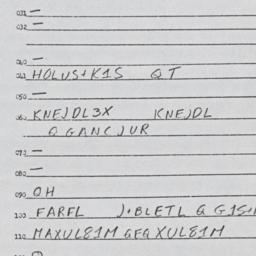 031 —
032 —
040 —
041 HOLUS+K1S QT
050 —
060 KNEJDL3X KNEJDL
Q GANCJUR
070 —
080 —
090 OH
100 FARFL J+BLETL Q G1S+
110 MAXUL81M GFQ XUL81M